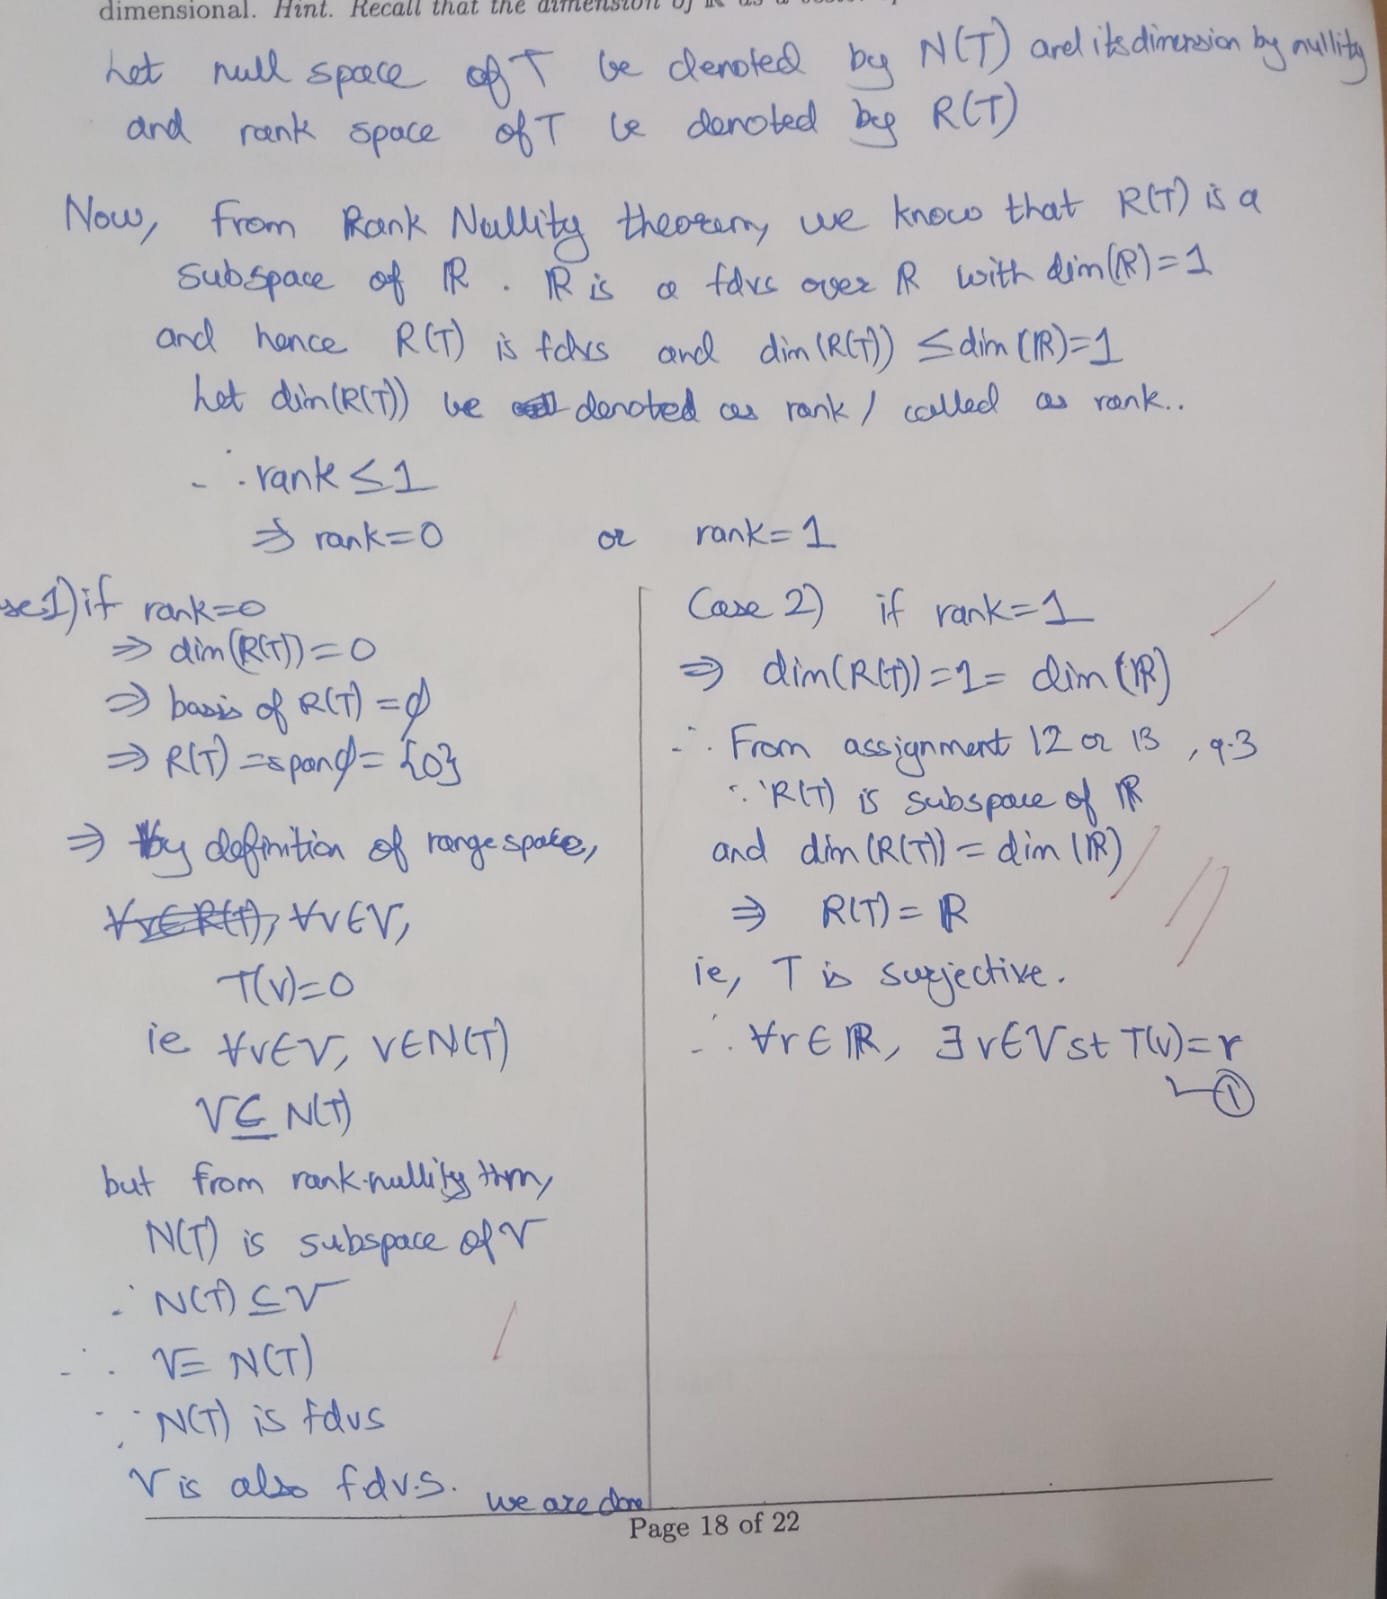 dimensional. Hint. Recall that the dimension of ℝ as a
Let null space of T be denoted by N(T) and its dimension by nullity
and rank space of T be denoted by R(T)
Now, from Rank Nullity theorem, we know that R(T) is a
subspace of ℝ. ℝ is a fdvs over ℝ with dim(ℝ)=1
and hence R(T) is fdvs and dim(R(T)) ≤ dim(ℝ)=1
Let dim(R(T)) be denoted as rank / called as rank..
∴ rank ≤ 1
⇒ rank=0 or rank=1
se1) if rank=0
⇒ dim(R(T))=0
⇒ basis of R(T) = ϕ
⇒ R(T) = span ϕ = {0}
⇒ by definition of range space,
∀v∈R(T), ∀v∈V,
T(v)=0
ie ∀v∈V, v∈N(T)
V⊆N(T)
but from rank-nullity thm,
N(T) is subspace of V
∴ N(T) ⊆ V
∴ V= N(T)
∵ N(T) is fdvs
V is also f.d.v.s. we are done
Case 2) if rank=1
⇒ dim(R(T))=1= dim(ℝ)
∴ From assignment 12 or 13, q.3
∵ R(T) is subspace of ℝ
and dim(R(T)) = dim(ℝ)
⇒ R(T) = ℝ
ie, T is surjective.
∴ ∀r∈ℝ, ∃v∈V st T(v)=r
①
Page 18 of 22